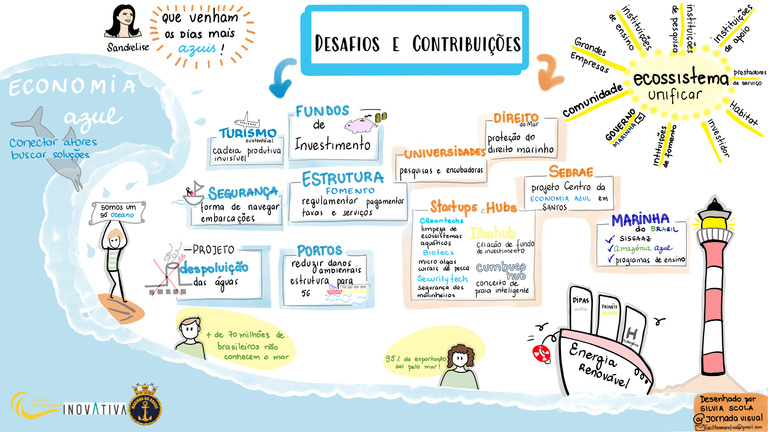 que venham
os dias mais
azuis!
Sandrelise
DESAFIOS E CONTRIBUIÇÕES
ECONOMIA
azul
Conectar atores
buscar soluções
SOMOS UM
SÓ OCEANO
TURISMO
sustentável
cadeia produtiva
invisível
FUNDOS
de
Investimento
SEGURANÇA
forma de navegar
embarcações
ESTRUTURA
FOMENTO
regulamentar pagamentos
taxas e serviços
PROJETO
despoluição
das águas
PORTOS
reduzir danos
ambientais
estrutura para
5G
UNIVERSIDADES
pesquisas e encubadoras
DIREITO
do Mar
proteção do
direito marinho
SEBRAE
projeto Centro da
ECONOMIA AZUL em
SANTOS
Startups e Hubs
Cleantechs
limpeza de
ecossistemas
aquáticos
Biotecs
micro algas
currais de pesca
Securitytech
segurança dos
marinheiros
Ilhahub
criação de fundo
de investimento
Cumbuco
hub
conceito de
praia inteligente
MARINHA
do BRASIL
✓ SISGAAZ
✓ Amazônia azul
✓ programas de ensino
ecossistema
unificar
Comunidade
Grandes
Empresas
instituições
de ensino
instituições
de pesquisa
instituições
de apoio
prestadores
de serviço
Habitat
investidor
instituições
de fomento
GOVERNO
MARINHA
+ de 70 milhões de
brasileiros não
conhecem o mar
95% da exportação
sai pelo mar!
DIPAS
H
Energia
Renovável
INOVATIVA
MARINHA DO BRASIL
Desenhado por
SILVIA SCOLA
@jornada visual